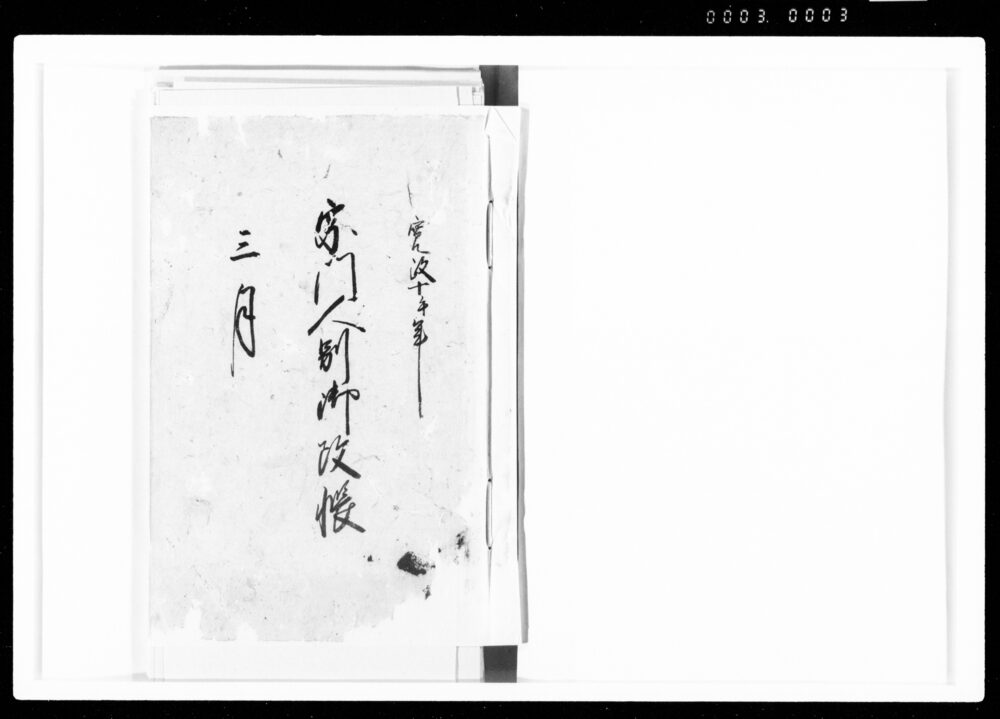 0003. 0003
寛政十午年
宗門人別御改帳
三月